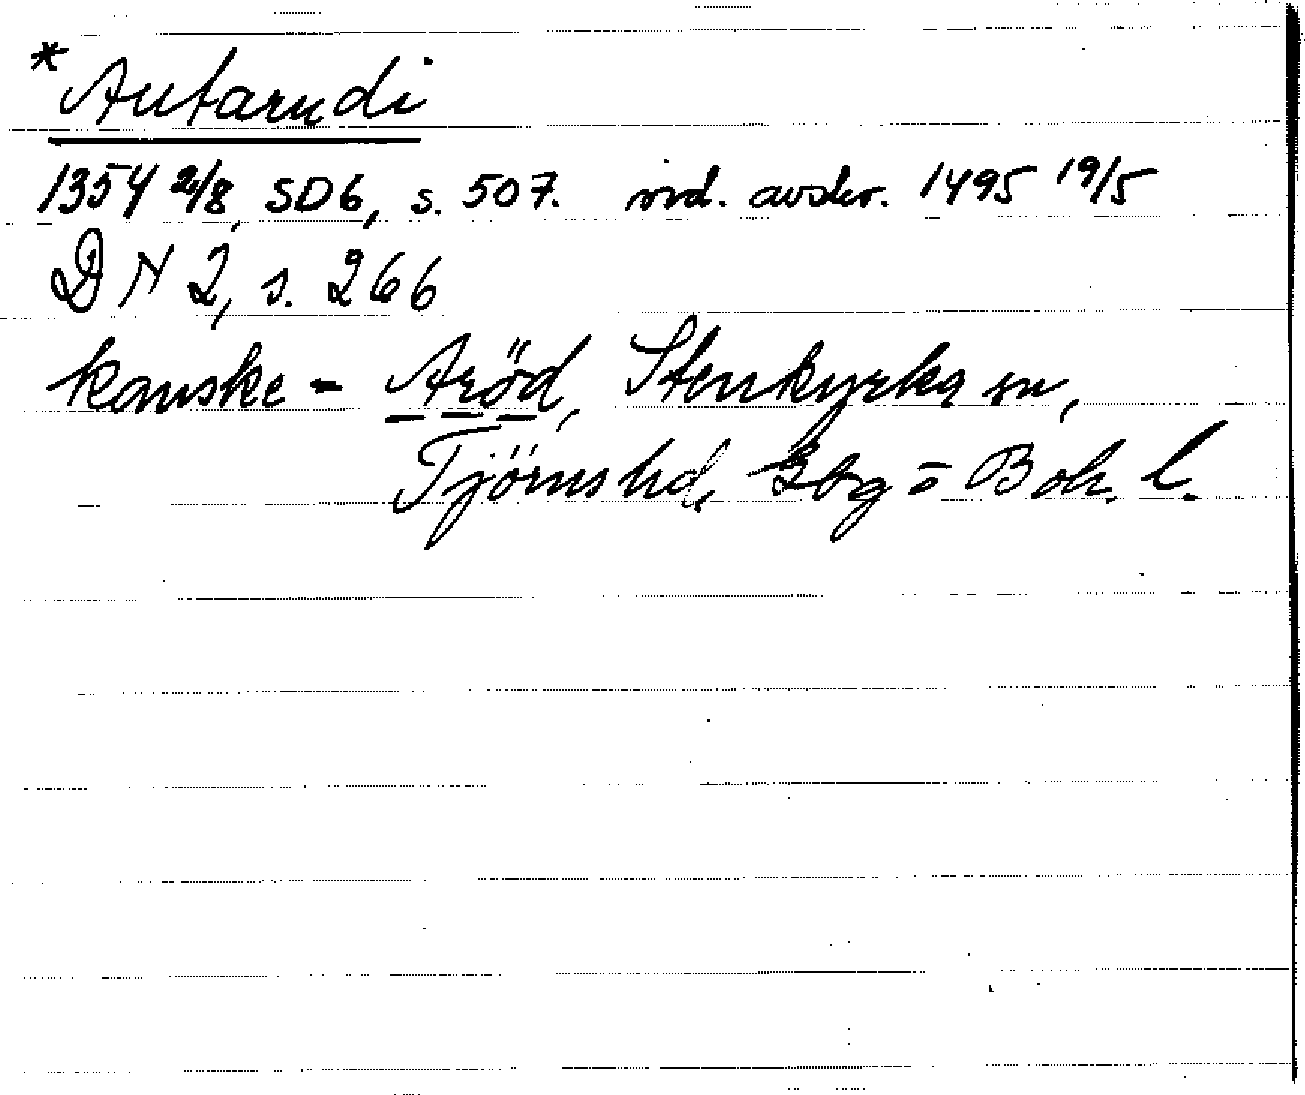 *Autarudi
1354 2/8, SD6, s. 507. vid. avskr. 1495 19/5
DN 2, s. 266
kanske = Aröd, Stenkyrka sn,
Tjörns hd, Gbg o Boh. l.